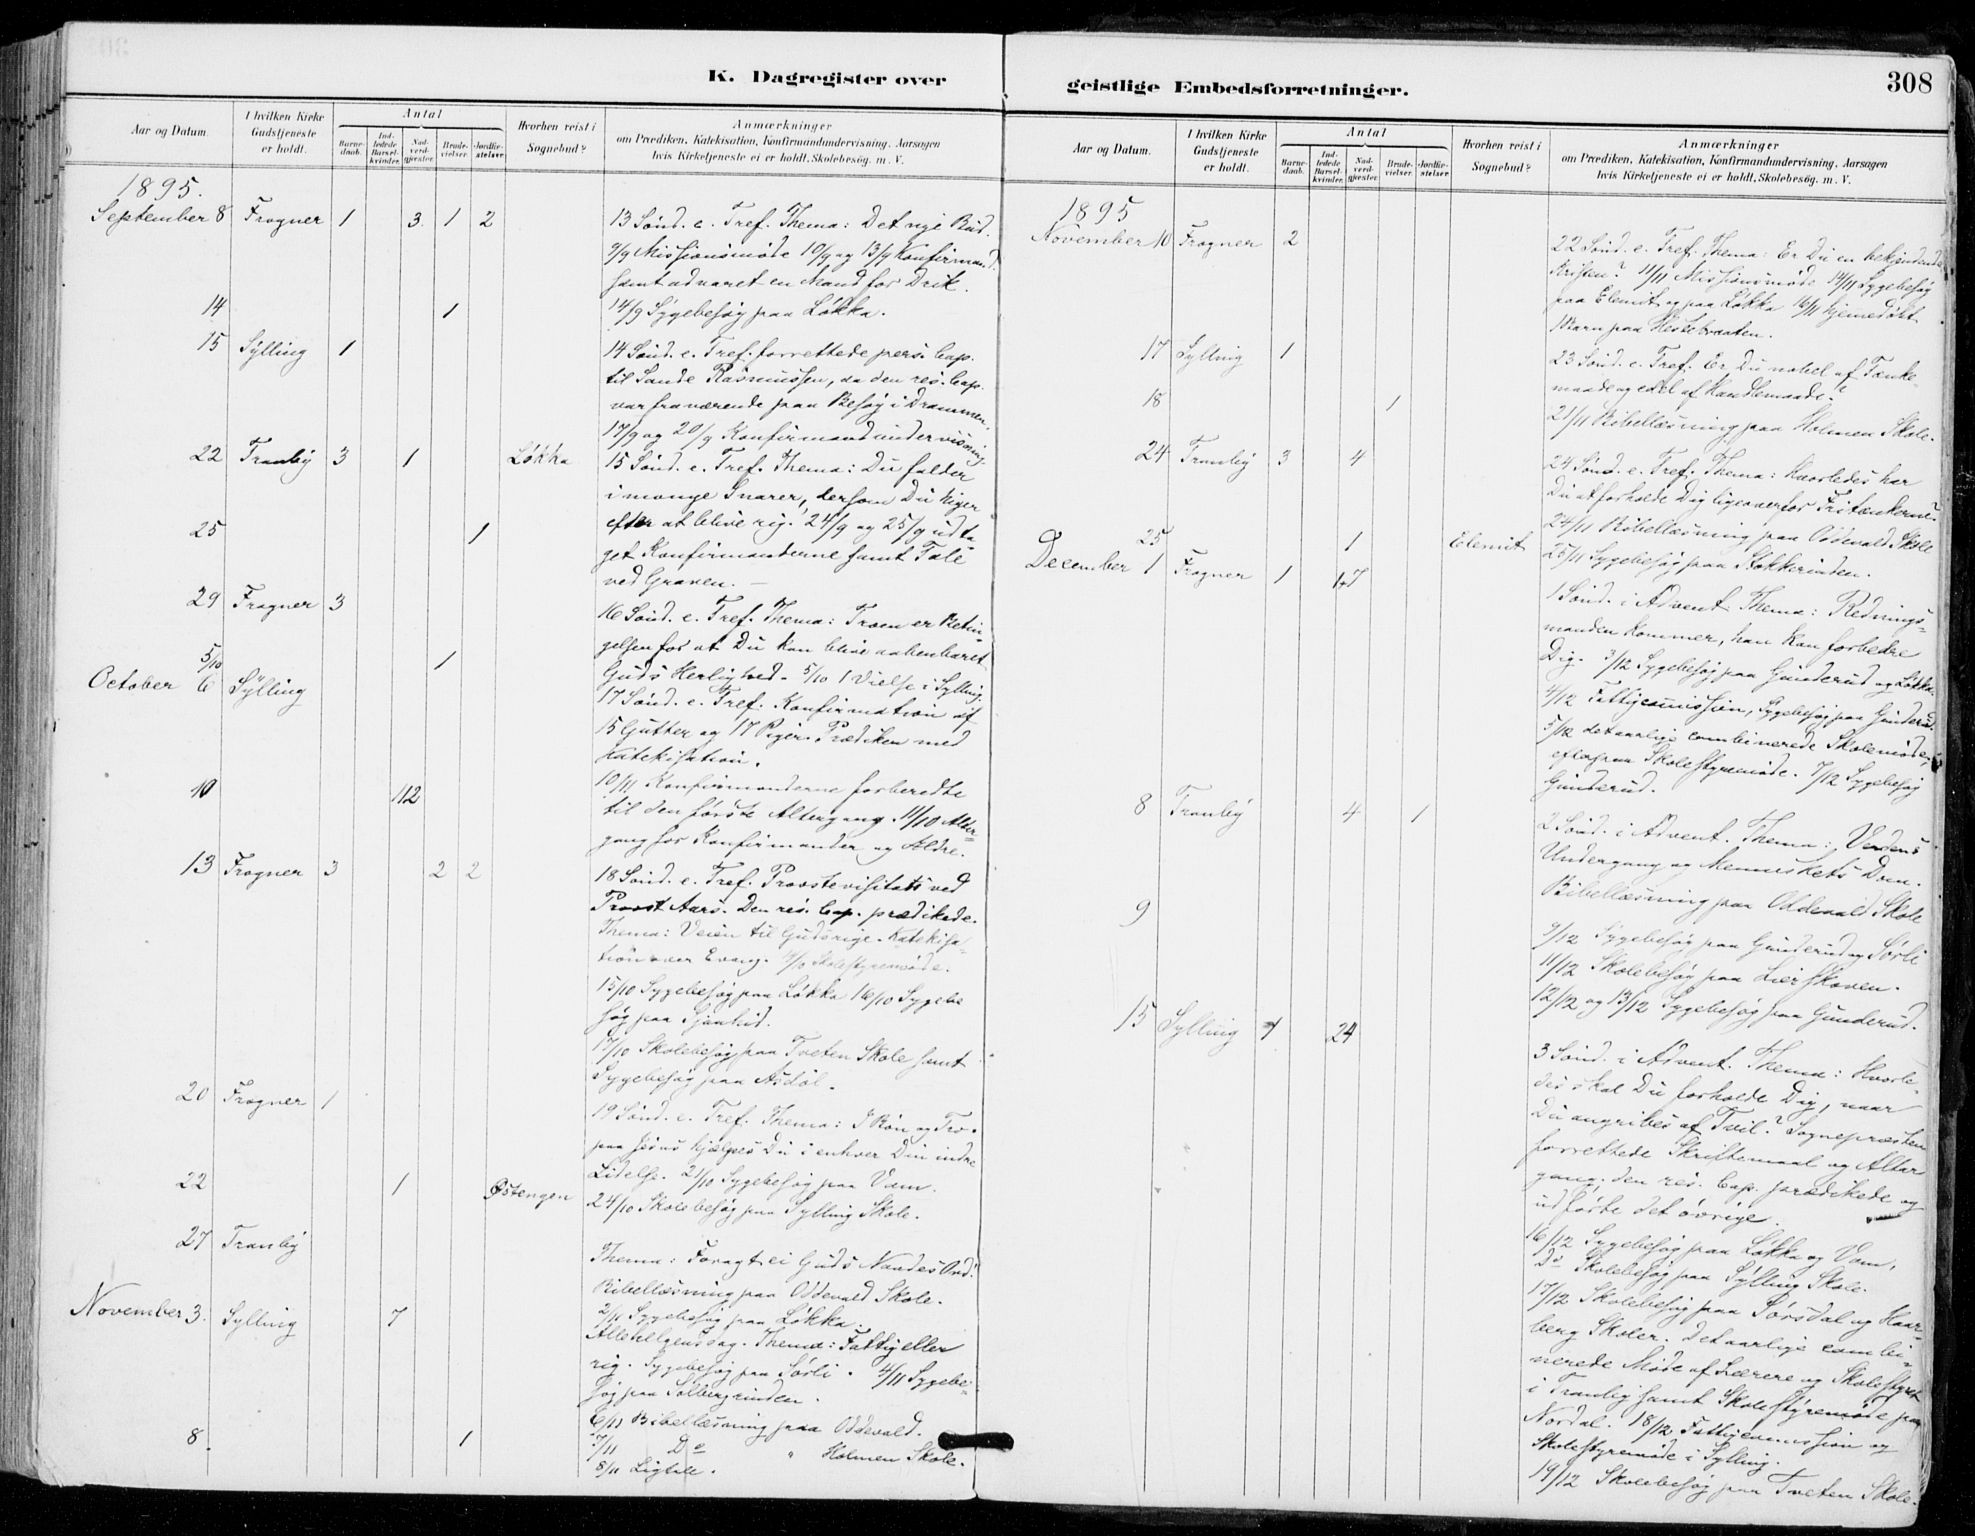 K. Dagregister over
Aar og Datum.
I hvilken Kirke
Gudstjeneste
er holdt.
Antal
Barne-
daab.
Ind-
ledede
Barsel-
kvinder.
Nad-
verd-
gjester.
Brude-
vielser.
Jordfæ-
stelser
Hvorhen reist i
Sognebud?
Anmærkninger
om Prædiken, Katekisation, Konfirmandundervisning, Aarsagen
hvis Kirketjeneste ei er holdt, Skolebesög. m. V.
1895.
September 8 Frogner 1 3. 1 2 13 Sönd. e. Tref. Thema: Det nye Bud.
9/9 Missionsmöde 10/9 og 13/9 Konfirmand.
samt advaret en Mand for Drik.
14 1 14/9 Sygebesög paa Løkka.
15 Sylling 1 14 Sönd. e. Tref. forrettede pers. Cap.
til Sande Rasmussen, da den res. Cap.
var fraværende paa Besög i Drammen.
17/9 og 20/9 Konfirmandundervisning.
22 Tranby 3 1 Løkka 15 Sönd. e. Tref. Thema: Du falder
i mange Snarer, dersom Du higer
efter at blive rig. 24/9 og 25/9 udta-
25 1
get Konfirmanderne samt Tale
ved Graven. —
29 Frogner 3 16 Sönd. e. Tref. Thema: Troen er Betin-
gelsen for at Du kan blive aabenbaret
5/10 1
Guds Herlighed. 5/10 1 Vielse i Sylling.
October 6 Sylling 17 Sönd. e. Tref. Konfirmation af
15 Gutter og 17 Piger. Prædiken med
Katekisation.
10 112 10/11 Konfirmanderne forberedte
til den förste Altergang 11/10 Alter-
gang for Konfirmander og Aldre.
13 Frogner 3 2 2 18 Sönd. e. Tref. Provstevisitats ved
Provst Aars. Den res. Cap. prædikede.
Thema: Veien til Gudsrige. Katekisa-
tion over Evang. 9/10 Skolestyremöde.
15/10 Sygebesög paa Løkka 16/10 Sygebe
sög paa
17/10 Skolebesög paa Tveten Skole samt
Sygebesög paa Asdöl.
20 Frogner 1 19 Sönd. e. Tref. Thema: I Bön og Tro
paa Jesus hjælpes Du i enhver Din indre
Lidelse. 21/10 Sygebesög paa Vam.
22 1 Østengen 24/10 Skolebesög paa Sylling Skole.
27 Tranby Thema: Foragt ei Guds Naades Ord.
Bibellæsning paa Oddevald Skole.
2/11 Sygebesög paa Løkka.
November 3. Sylling 7 Allehelgensdag. Thema: Fattig eller
rig. Sygebesög paa Sørli. 4/11 Sygebe-
sög paa Solbergrinden.
6/11 Bibellæsning paa Oddevald.
8. 1 7/11 Do " Holmen Skole.
8/11 Ligtale.
geistlige Embedsforretninger.
308
Aar og Datum.
I hvilken Kirke
Gudstjeneste
er holdt.
Antal
Barne-
daab.
Ind-
ledede
Barsel-
kvinder.
Nad-
verd-
gjester.
Brude-
vielser.
Jordfæ-
stelser
Hvorhen reist i
Sognebud?
Anmærkninger
om Prædiken, Katekisation, Konfirmandundervisning, Aarsagen
hvis Kirketjeneste ei er holdt, Skolebesög. m. V.
1895
November 10 Frogner 2 22 Sönd. e. Tref. Thema: Er Du en bekjendende
Kristen? 11/11 Missionsmöde 14/11 Sygebesög
paa Elemit og paa Løkka 16/11 hjemedöbt
1 Barn paa Hestebraaten.
17 Sylling 1 23 Sönd. e. Tref. Er Du nobel af Tænke-
maade og edel af Handlemaade?
18 1
21/11 Bibellæsning paa Holmen Skole.
24 Tranby 3 4 24 Sönd. e. Tref. Thema: Hvorledes har
Du at forholde Dig ligeoverfor Fritænkerne?
24/11 Bibellæsning paa Oddevald Skole
25 1 Elemit 25/11 Sygebesög paa Stokkerinden.
December 1 Frogner 1 1+7 1 Sönd. i Advent. Thema: Rednings-
manden kommer, han kan forbedre
Dig. 3/12 Sygebesög paa Gunderud og Løkka.
4/12 Fattigcomission, Sygebesög paa Gunderud.
5/12 det aarlige combinerede Skolemöde,
Skolestyremöde. 7/12 Sygebesög
Gunderud.
8 Tranby 4 1 2 Sönd. i Advent. Thema: Verdens
Undergang og Menneskets Dom.
Bibellæsning paa Oddevald Skole
9
9/12 Sygebesög paa Gunderud og Sørli
11/12 Skolebesög paa Lierskoven.
12/12 og 13/12 Sygebesög paa Gunderud.
15 Sylling 1 24 3 Sönd. i Advent. Thema: Hvorle-
des skal Du forholde Dig, naar
Du angribes af Tvil? Sognepræsten
forrettede Skriftemaal og Alter
gang. den res. Cap. prædikede og
udförte det övrige.
16/12 Sygebesög paa Løkka og Vam,
Do Skolebesög paa Sylling Skole.
17/12 Skolebesög paa Sørsdal og Haar-
berg Skoler. Det aarlige combi-
nerede Möde af Lærere og Skolestyret
i Tranby samt Skolestyremöde paa
Nordal. 18/12 Fattigcomission og
Skolestyremöde i Sylling.
19/12 Skolebesög paa Tveten Skole.